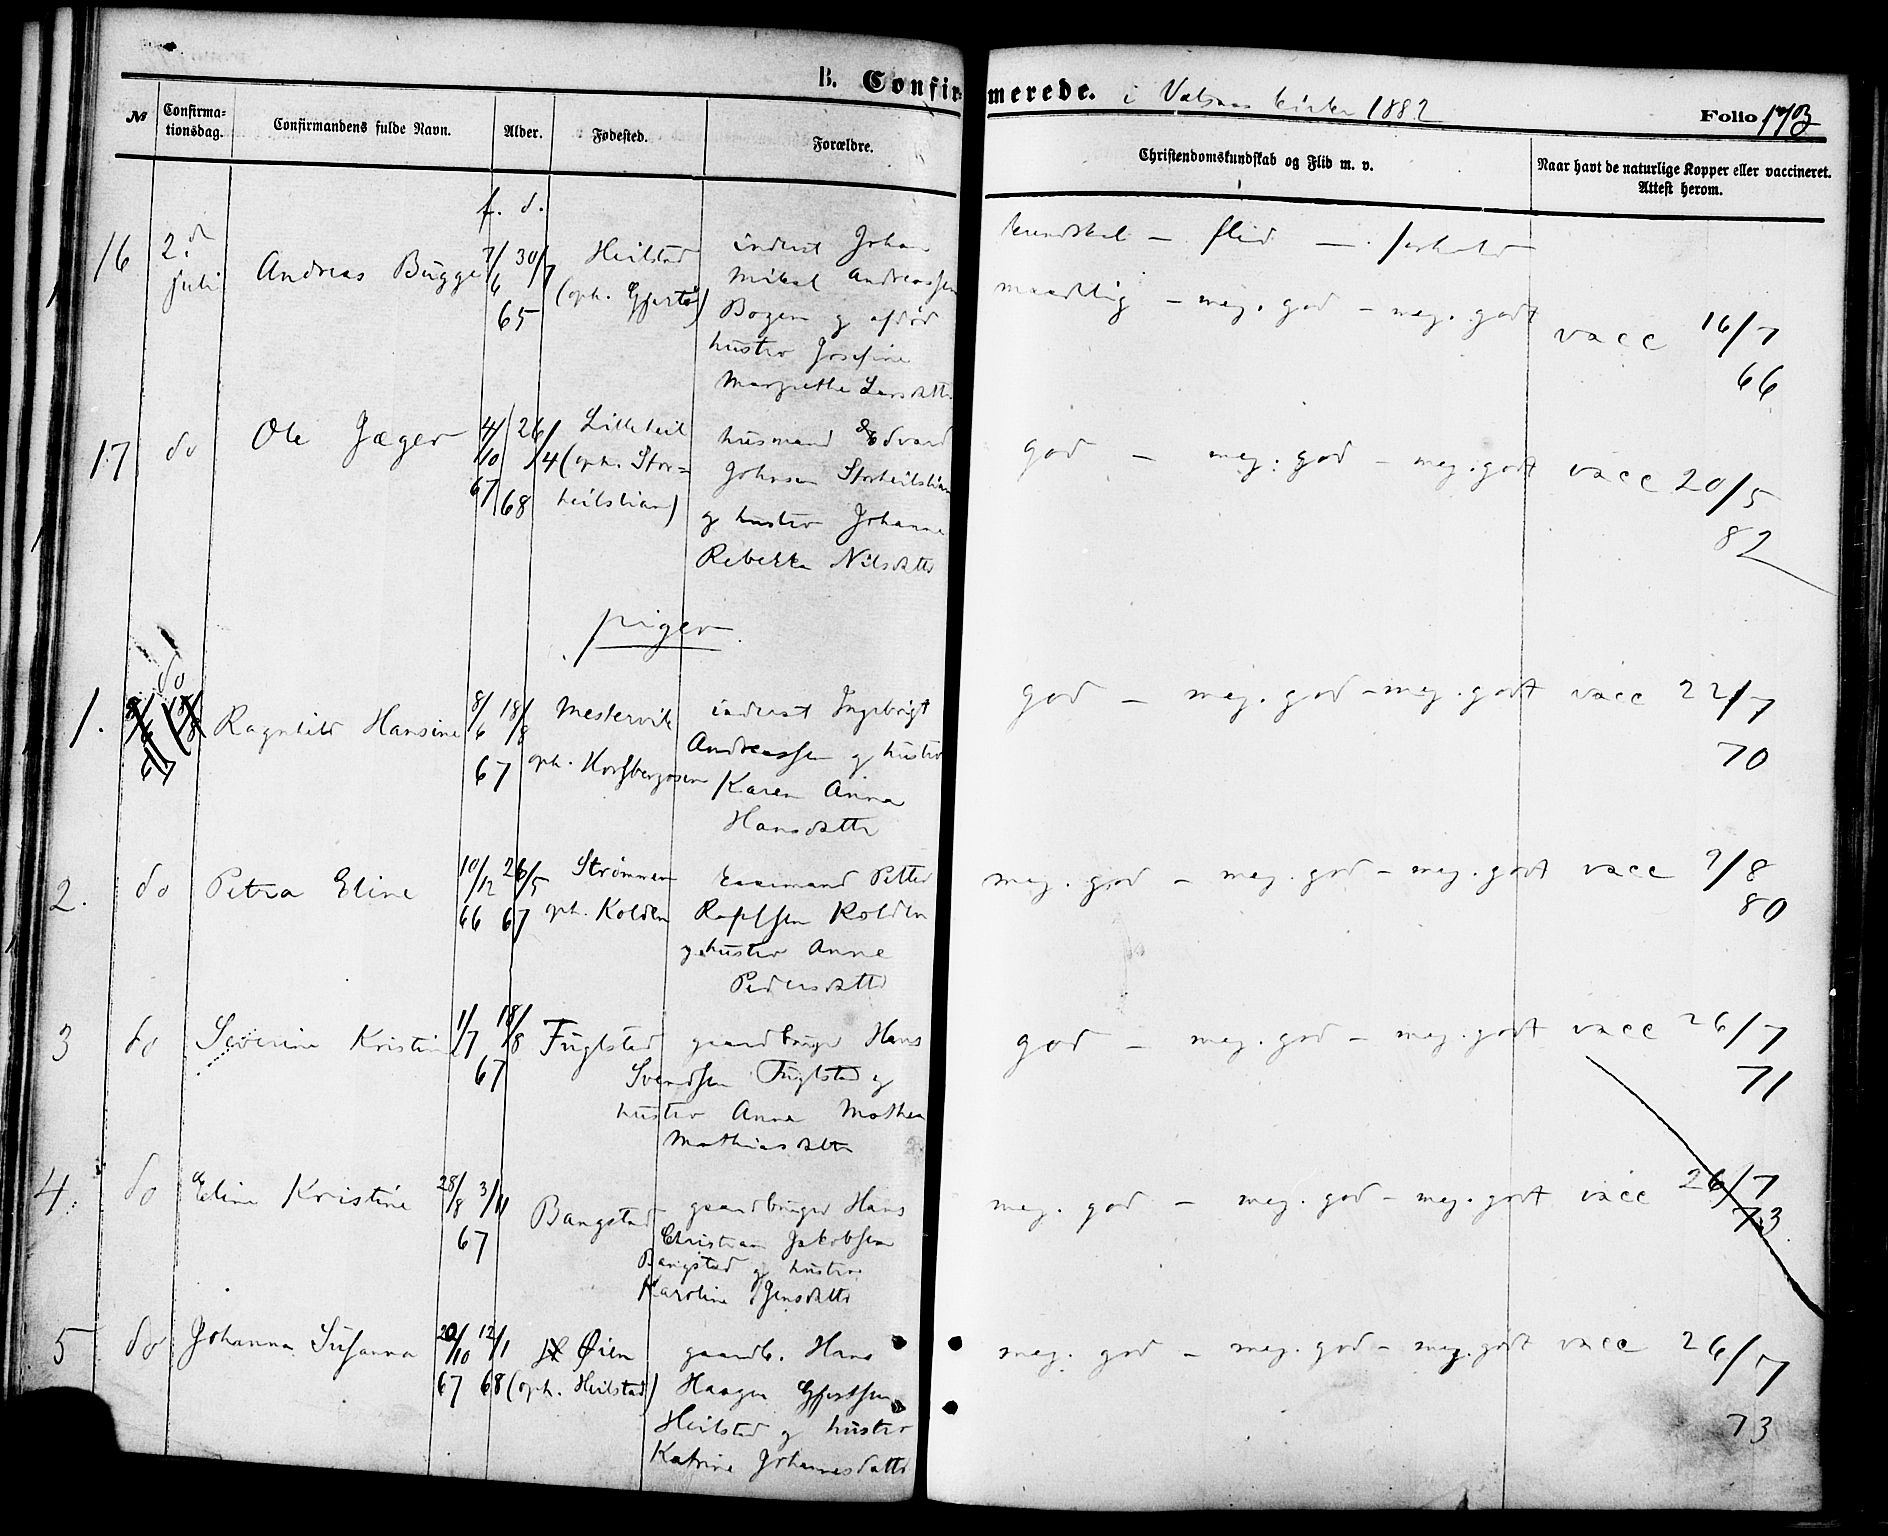 B. Confirmerede. i Valsnes kirke 1882
Folio 173
№
Confirmationsdag.
Confirmandens fulde Navn.
Alder.
Fødested.
Forældre.
Christendomskundskab og Flid m. v.
Naar havt de naturlige Kopper eller vaccineret.
Attest herom.
f. d.
kundskab – flid – forhold
16 2den juli Andreas Bugge 7/6 30/7 65
Heilstad
(oph. Gjertø)
inderst Johan
Mikal Andreassen
Bogen og afdød
hustro Josefine
Margrethe Larsdatter
maadelig – meg. god – meg. godt vacc 16/7
66
17 do Ole Jæger 4/10 67 26/4 68
Lilleheil
(oph. Stor=
heilslian)
husmand Edvard
Johnsen Storheilslian
og hustro Johanna
Rebekka Nilsdatter
god – meg. god – meg. godt vacc 20/5
82
piger
1. do Ragnhild Hansine 8/6 18/8 67
Mestervik
oph. Korsbergosen
inderst Ingebrigt
Andreassen og hustro
Karen Anna
Hansdatter
god – meg. god – meg. godt vacc 22/7
70
2. do Petra Eline 10/12 66 26/5 67
Strømmen
oph. Kolden
Petter
Kolden
og hustro Anne
Pedersdatter
meg. god – meg. god – meg. godt vacc 9/8
80
3 do Severine Kristine 1/7 18/8 67
Fuglstad
gaardbruger Hans
Svendsen Fuglstad og
hustro Anna Mathea
Mathiasdatter
god – meg. god – meg. godt vacc 26/7
71
4. do Eline Kristine 28/8 3/11 67
Bangstad
gaardbruger Hans
Christian Jakobsen
Bangstad og hustro
Karoline Jensdatter
meg. god – meg. god – meg. godt vacc 26/7
73
5 do Johanna Susanna 20/10 67 12/1 68
Øien
(oph. Heilstad)
gaardb. Hans
Haagen Gjertsen
Heilstad og hustro
Katrine Johannesdatter
meg. god – meg. god – meg. godt vacc 26/7
73